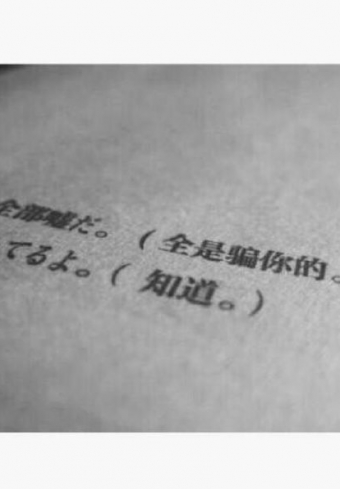 全部嘘だ。(全是骗你的。
てるよ。(知道。)